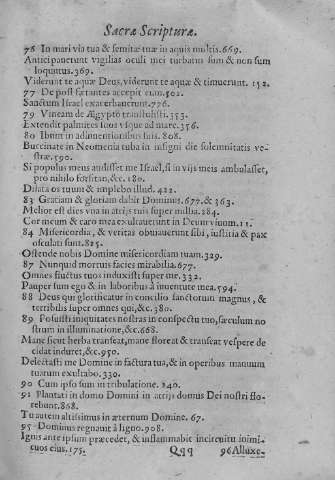 Sacræ Scripturæ.
76 In mari via tua & semitæ tuæ in aquis multis. 669.
Anticipauerunt vigilias oculi mei turbatus sum & non sum
loquutus. 369.
Viderunt te aquæ Deus, viderunt te aquæ & timuerunt. 152.
77 De post fœtantes accepit eum. 502.
Sanctum Israel exacerbauerunt. 726.
79 Vineam de Ægypto transtulisti. 353.
Extendit palmites suos vsque ad mare. 356.
80 Ibunt in adinuentionibus suis. 808.
Buccinate in Neomenia tuba in insigni die solemnitatis ve-
stræ. 590.
Si populus meus audisset me Israel, si in vijs meis ambulasset,
pro nihilo forsitan, &c. 180.
Dilata os tuum & implebo illud. 422.
83 Gratiam & gloriam dabit Dominus. 677. & 363.
Melior est dies vna in atrijs tuis super millia. 284.
Cor meum & caro mea exultauerunt in Deum viuum. 15.
84 Misericordia, & veritas obuiauerunt sibi, iustitia & pax
osculati sunt. 825.
Ostende nobis Domine misericordiam tuam. 329.
87 Nunquid mortuis facies mirabilia. 677.
Omnes fluctus tuos induxisti super me. 332.
Pauper sum ego & in laboribus à iuuentute mea. 594.
88 Deus qui glorificatur in concilio sanctorum magnus, &
terribilis super omnes qui, &c. 380.
89 Posuisti iniquitates nostras in conspectu tuo, sæculum no
strum in illuminatione, &c. 668.
Mane sicut herba transeat, mane floreat & transeat vespere de
cidat induret, &c. 950.
Delectasti me Domine in factura tua, & in operibus manuum
tuarum exultabo. 330.
90 Cum ipso sum in tribulatione. 240.
91 Plantati in domo Domini in atrijs domus Dei nostri flo-
rebunt. 868.
Tu autem altissimus in æternum Domine. 67.
95 Dominus regnauit à ligno. 908.
Ignis ante ipsum præcedet, & inflammabit in circuitu inimi-
cos eius. 175. Qqq 96 Alluxe-